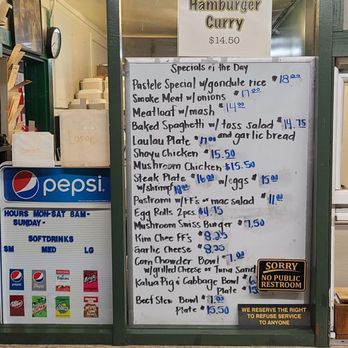 Hamburger
Curry
$14.50
Specials of the Day
Pastele Special w/gondule rice $18.00
Smoke Meat w/onions $17.00
Meatloaf w/mash $14.00
Baked Spaghetti w/toss salad $14.75
and garlic bread
Laulau Plate $17.00
Shoyu Chicken $15.50
Mushroom Chicken $15.50
Steak Plate $16.00 w/eggs $15.00
w/shrimp $18.00
Pastrami w/FF's or mac salad $11.00
Egg Rolls 2pcs $4.75
Mushroom Swiss Burger $7.50
Kim Chee FF's $8.25
Garlic Cheese $8.25
Corn Chowder Bowl $7.00
w/grilled Cheese or Tuna Sand
Kalua Pig & Cabbage Bowl
Plate
Beef Stew Bowl $7.00
Plate $15.50
pepsi
HOURS MON-SAT 8AM-
SUNDAY-
SOFTDRINKS
SM MED LG
SORRY
NO PUBLIC
RESTROOM
WE RESERVE THE RIGHT
TO REFUSE SERVICE
TO ANYONE